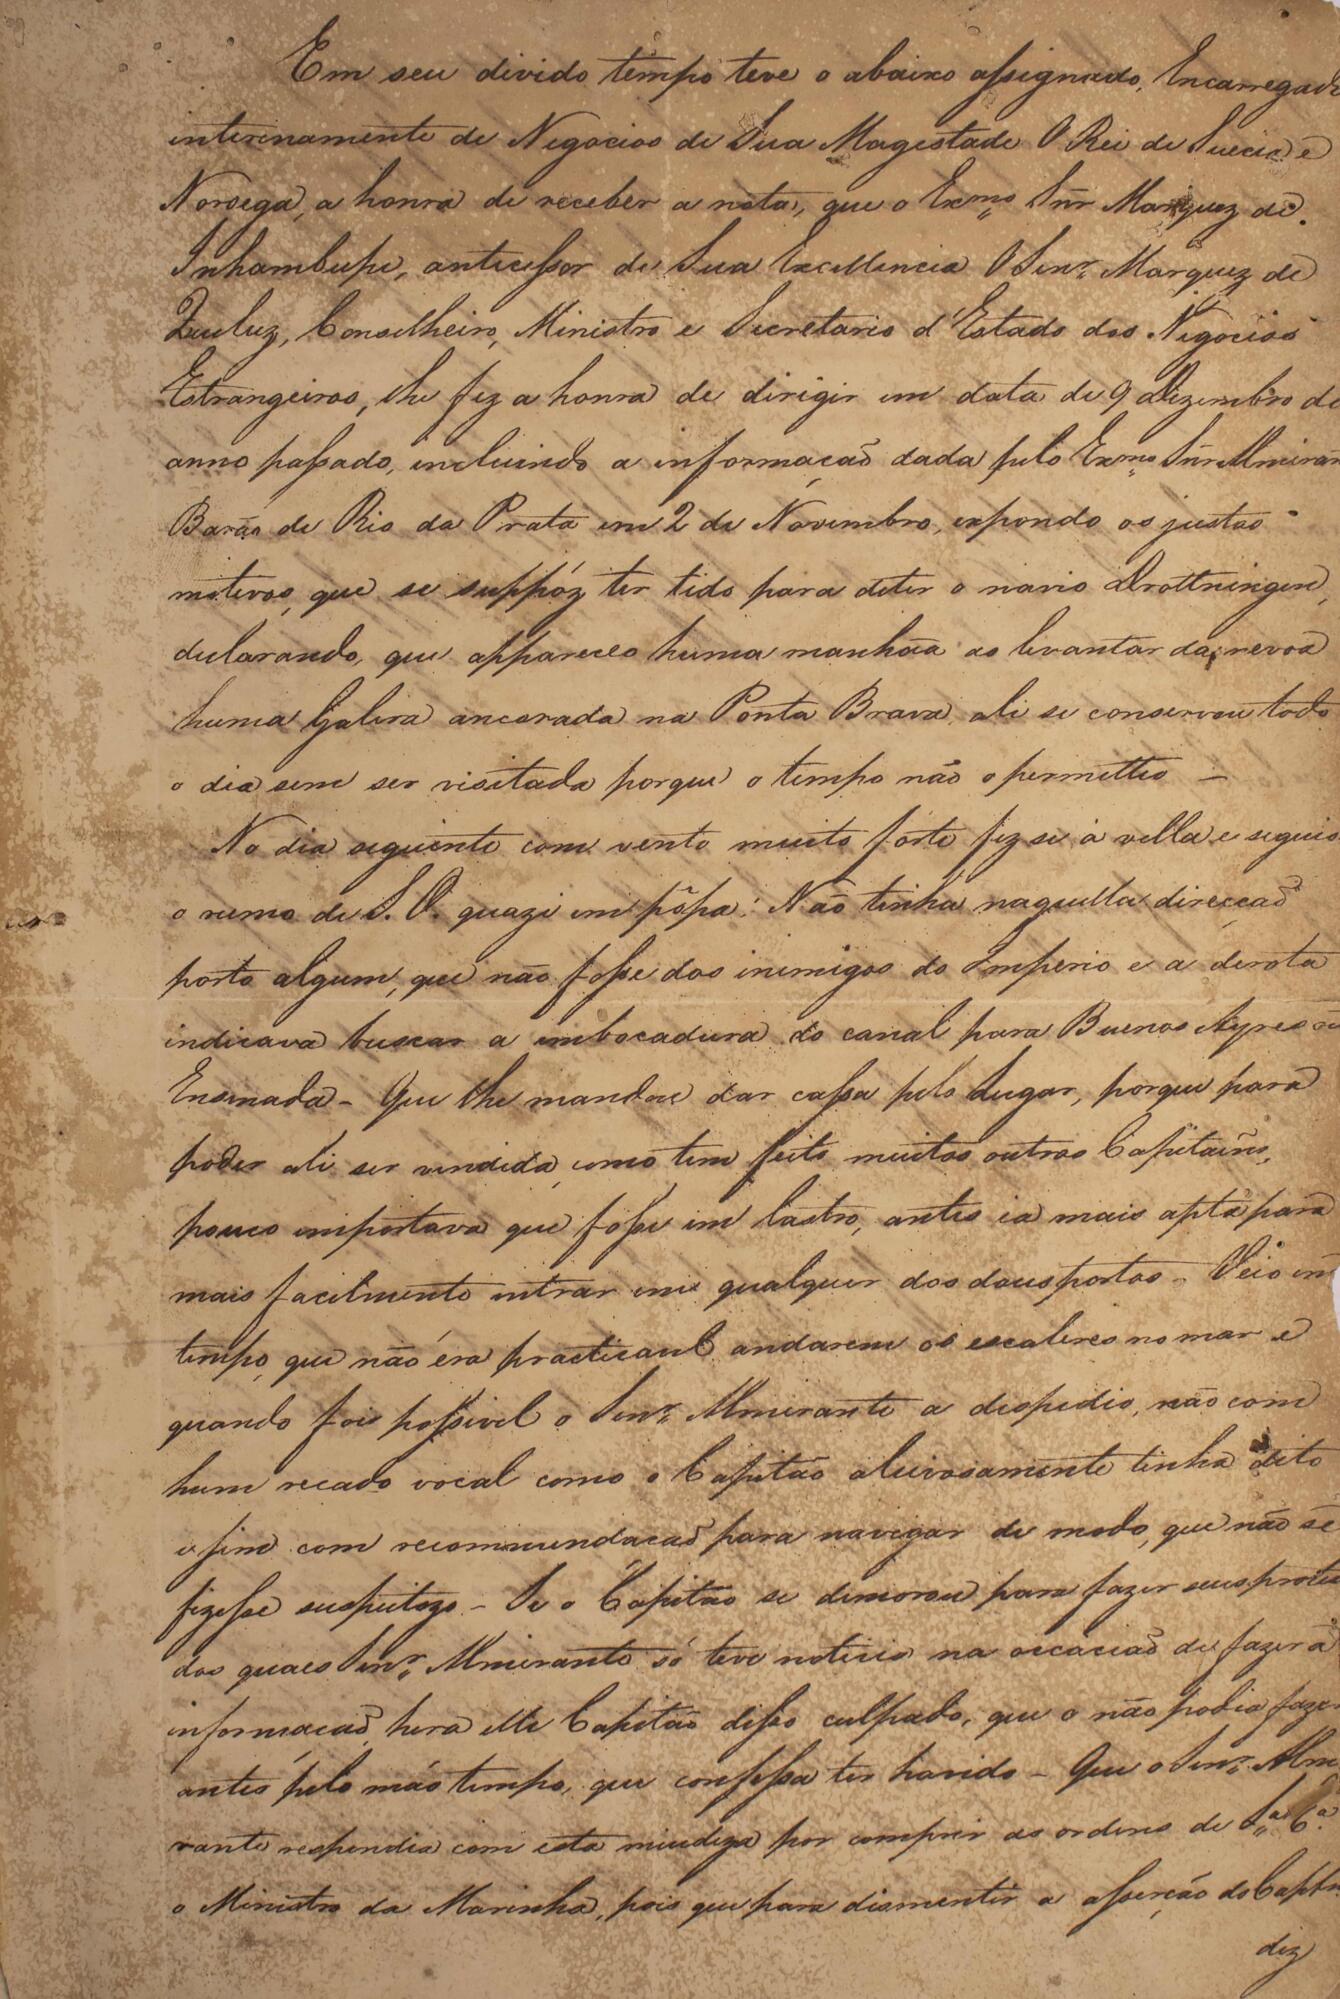 Em seu divido tempo teve o abaixo assignado, Encarregado
interinamente de Negocios de Sua Magestade O Rei de Suecia e
Noroega, a honra de receber a nota, que o Exmo Snr Marquez de
Inhambupe, antecessor de Sua Excellencia O Senr Marquez de
Queluz, Conselheiro, Ministro e Secretario d'Estado dos Negocios
Estrangeiros, lhe fez a honra de dirigir em data de 9 Dezembro do
anno passado, incluindo a informação dada pelo Exmo Snr Almiran
Barão de Rio da Prata em 2 de Novembro, expondo os justos
motivos, que se suppóz ter tido para deter o navio Drottningen,
declarando, que appareceo huma manhãa ao levantar da nevoa
huma Galera ancorada na Ponta Brava, ali se conservou todo
o dia sem ser visitada porque o tempo não o permettio –
No dia seguinte com vento muito forte fez se á vella e seguio
o rumo de S. O. quazi em pôpa: Não tinha naquella direcçaõ
porto algum, que não fosse dos inimigos do Imperio e a derota
indicava buscar a embocadura do canal para Buenos Ayres ou
Ensenada – Que lhe mandou dar cassa pelo Lugar, porque para
poder ali ser vendida, como tem feito muitos outros Capitaens,
pouco importava que fosse em lastro, antes ia mais apta para
mais facilmente entrar em qualquer dos dous portos – Veio em
tempo, que não éra practicavel andarem os escaleres no mar e
quando foi possivel o Senr Almirante a despedio, não com
hum recado vocal como o Capitão aleivosamente tinha dito
e sim com recommendacaõ para navegar de modo, que não se
fizesse suspeitozo – Se o Capitão se demorou para fazer seus protes
dos quaes Senr Almirante só teve noticia na occaciaõ de fazer a
informacaõ, hera elle Capitão disso culpado, que o não podia fazer
antes pelo máo tempo, que confessa ter havido – Que o Senr Almi
rante respondia com esta miudeza por comprir as ordens de Sa Ea
o Ministro da Marinha, pois que para desmentir a asserção do Capitão
diz